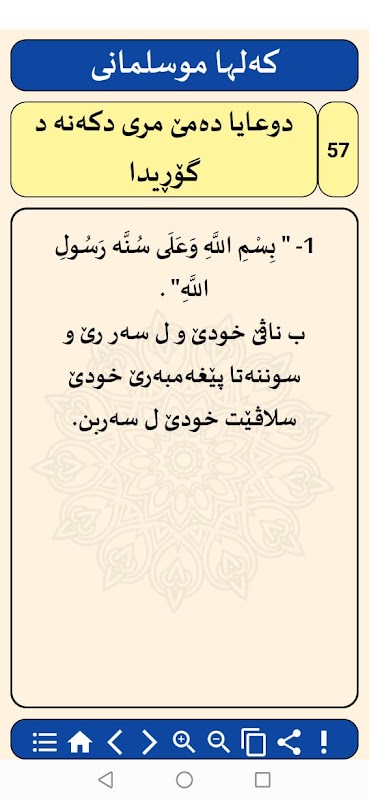 کەلها موسلمانی
دوعایا دەمێ مری دکەنە د
گۆڕیدا
57
1- " بِسْمِ اللَّهِ وَعَلَى سُنَّه رَسُولِ
اللَّهِ" .
ب ناڤێ خودێ و ل سەر رێ و
سوننەتا پێغەمبەرێ خودێ
سلاڤێت خودێ ل سەربن.